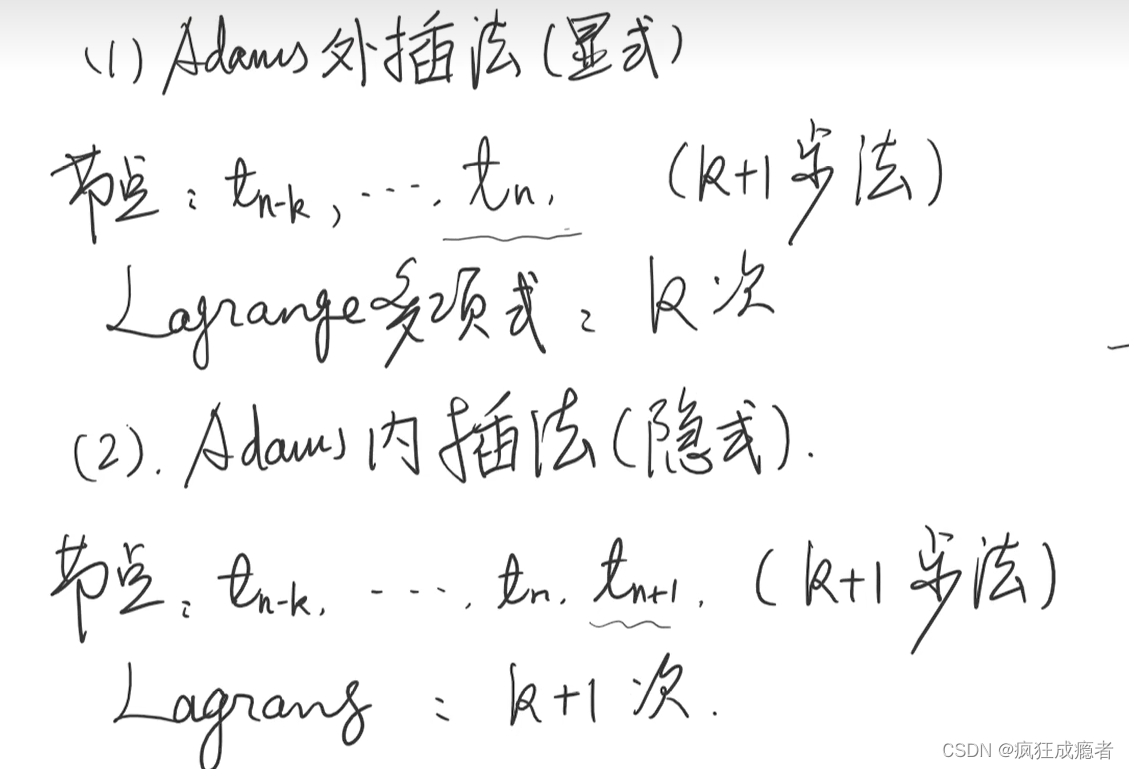 (1) Adams 外插法(显式)
节点: t_{n-k}, ···, t_n, (k+1步法)
Lagrange多项式: k次
(2). Adams 内插法(隐式).
节点: t_{n-k}, ···, t_n, t_{n+1}, (k+1步法)
Lagrang : k+1次.
CSDN @疯狂成瘾者